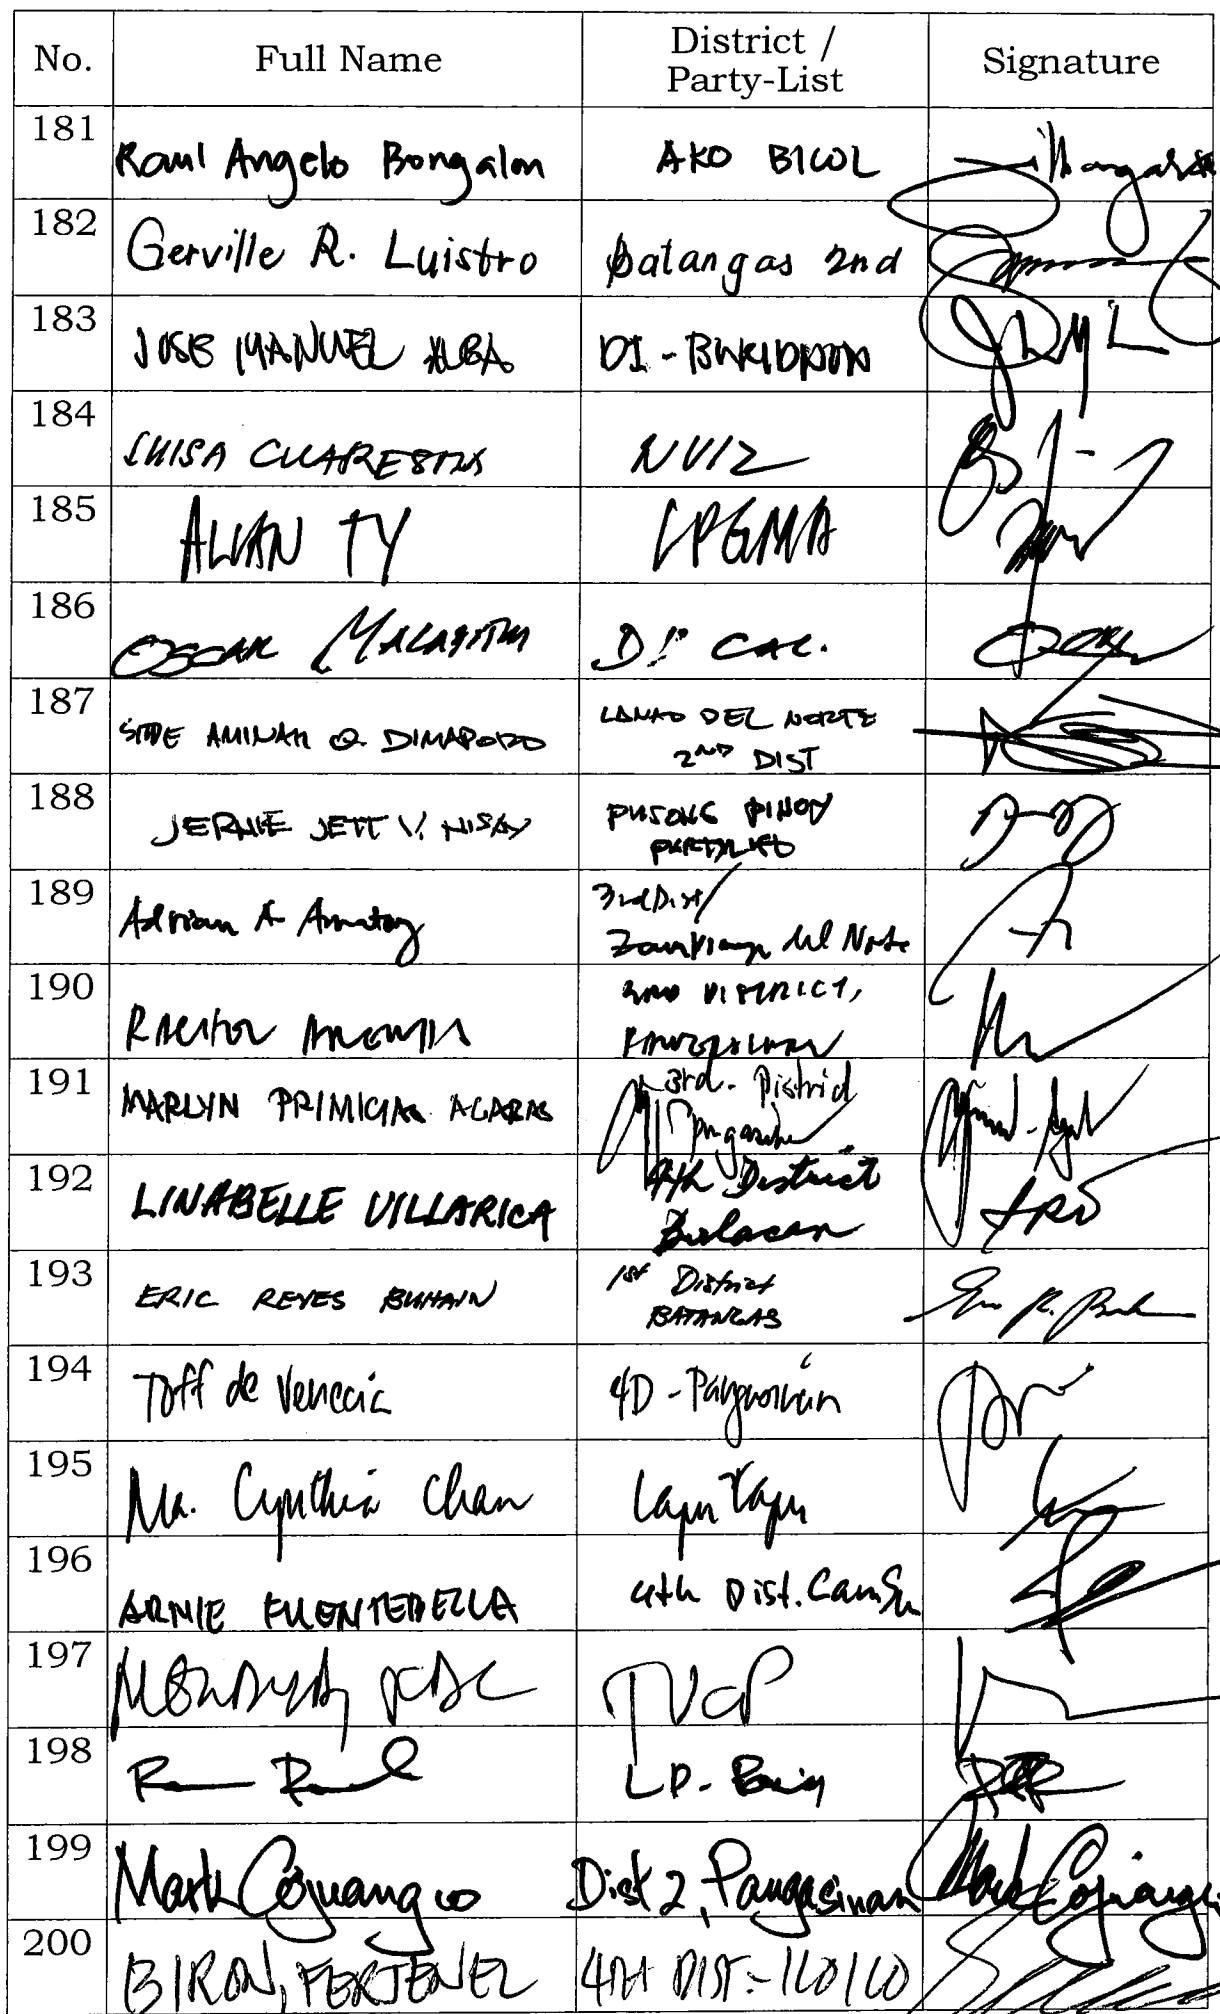 No. Full Name District / Party-List Signature
181 Raul Angelo Bongalon AKO BICOL
182 Gerville R. Luistro Batangas 2nd
183 JOSE MANUEL ALBA D1 - BUKIDNON
184 LUISA CUARESMA NVIZ
185 ALLAN TY LPGMA
186 OSCAR MALAPITAN D1 CAL.
187 SITTIE AMINAH Q. DIMAPORO LANAO DEL NORTE
2ND DIST
188 JERNIE JETT V. NISAY PUSONG PINOY
PARTYLIST
189 Adrian A Amatong 3rd Dist/
Zamboanga del Norte
190 RACHEL ARENAS 3RD DISTRICT,
PANGASINAN
191 MARLYN PRIMICIAS AGABAS 3rd. District
Pangasinan
192 LINABELLE VILLARICA 4th District
Bulacan
193 ERIC REYES BUHAIN 1st District
BATANGAS
194 Toff de Venecia 4D - Pangasinan
195 Ma. Cynthia Chan Lapu Lapu
196 ARNIE FUENTEBELLA 4th Dist. CamSu
197 TUCP
198
199 Mark Cojuangco Dist 2, Pangasinan Mark Cojuangco
200 BIRON, FERJENEL 4TH DIST - ILOILO